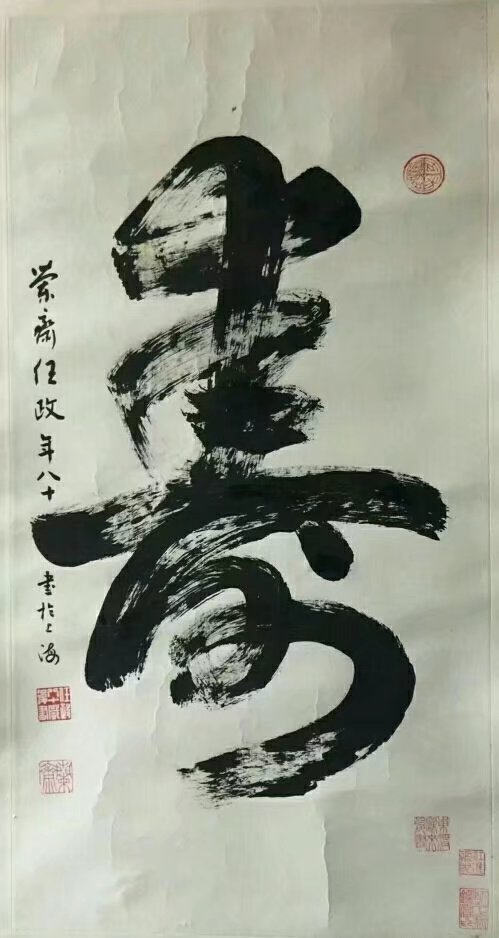 壽
蘭齋任政年八十書於上海